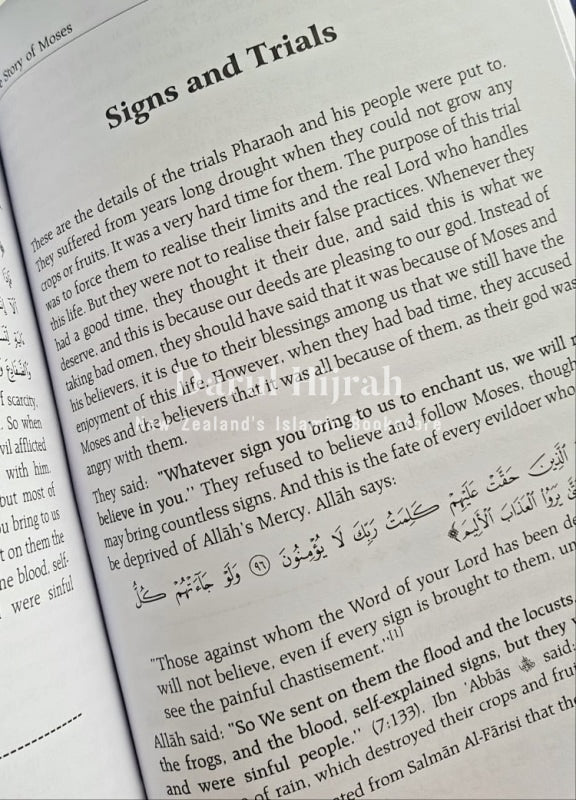 Story of Moses
Signs and Trials
These are the details of the trials Pharaoh and his people were put to.
They suffered from years long drought when they could not grow any
crops or fruits. It was a very hard time for them. The purpose of this trial
was to force them to realise their limits and the real Lord who handles
this life. But they were not to realise their false practices. Whenever they
had a good time, they thought it their due, and said this is what we
deserve, and this is because our deeds are pleasing to our god. Instead of
taking bad omen, they should have said that it was because of Moses and
his believers, it is due to their blessings among us that we still have the
enjoyment of this life. However, when they had bad time, they accused
Moses and the believers that it was all because of them, as their god was
angry with them.
They said: "Whatever sign you bring to us to enchant us, we will
believe in you." They refused to believe and follow Moses, though
may bring countless signs. And this is the fate of every evildoer who
be deprived of Allāh's Mercy. Allāh says:
ٱلَّذِينَ حَقَّتْ عَلَيْهِمْ كَلِمَتُ رَبِّكَ لَا يُؤْمِنُونَ ٩٦ وَلَوْ جَآءَتْهُمْ كُلُّ
يَرَوُا۟ ٱلْعَذَابَ ٱلْأَلِيمَ﴾
"Those against whom the Word of your Lord has been
will not believe, even if every sign is brought to them,
see the painful chastisement."[1]
Allāh said: "So We sent on them the flood and the locusts,
the frogs, and the blood, self-explained signs, but they
and were sinful people." (7:133). Ibn 'Abbās said:
of rain, which destroyed their crops and
from Salmān Al-Fārisi that the
of scarcity.
So when
afflicted
with him
but most of
bring to us
on them the
blood, self-
were sinful
Darul Hijrah
New Zealand's Islamic Bookstore